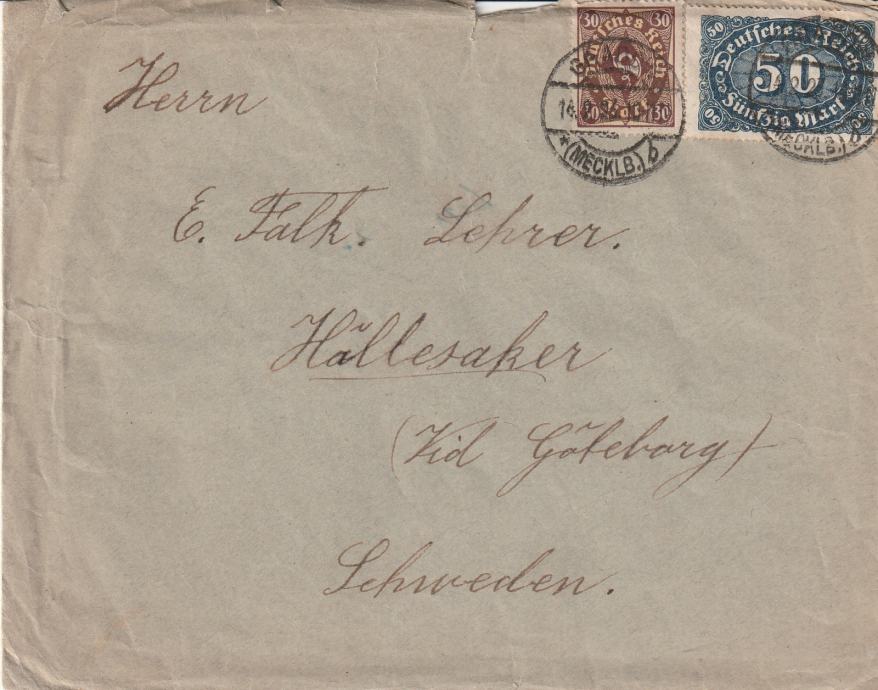 30 30
Deutsches Reich
30 30
50
Deutsches Reich
50
Fünfzig Mark
50 50
(MECKLB.) b
(MECKLB.) b
Herrn
E. Falk. Lehrer.
Hällesaker
(Vid Göteborg)
Schweden.